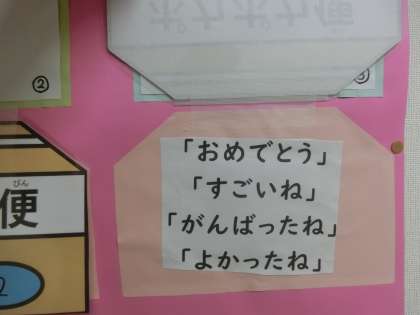 ②
③
びん
便
2
「おめでとう」
「すごいね」
「がんばったね」
「よかったね」